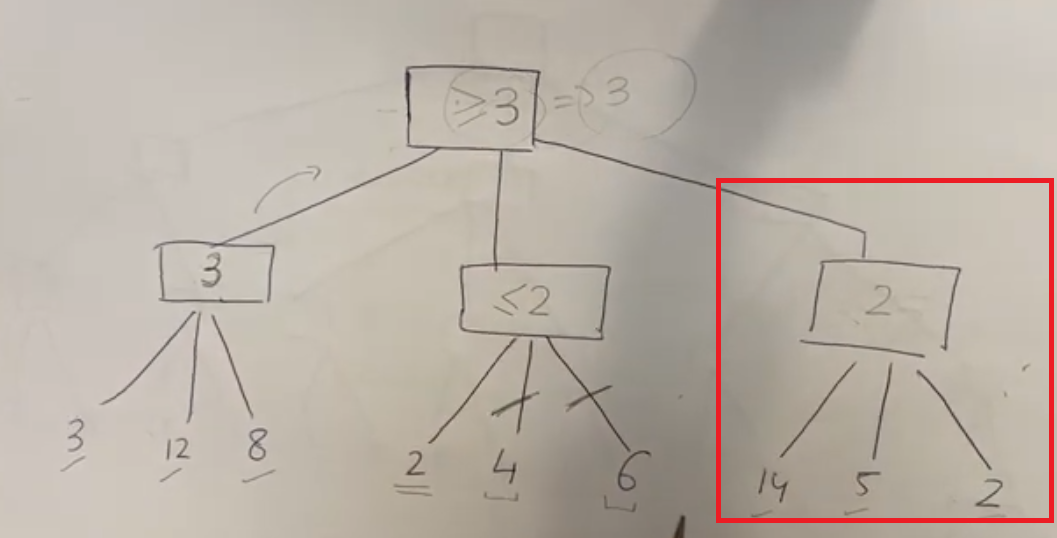 ≥3 => 3
3 ≤2 2
3 12 8 2 4 6 14 5 2